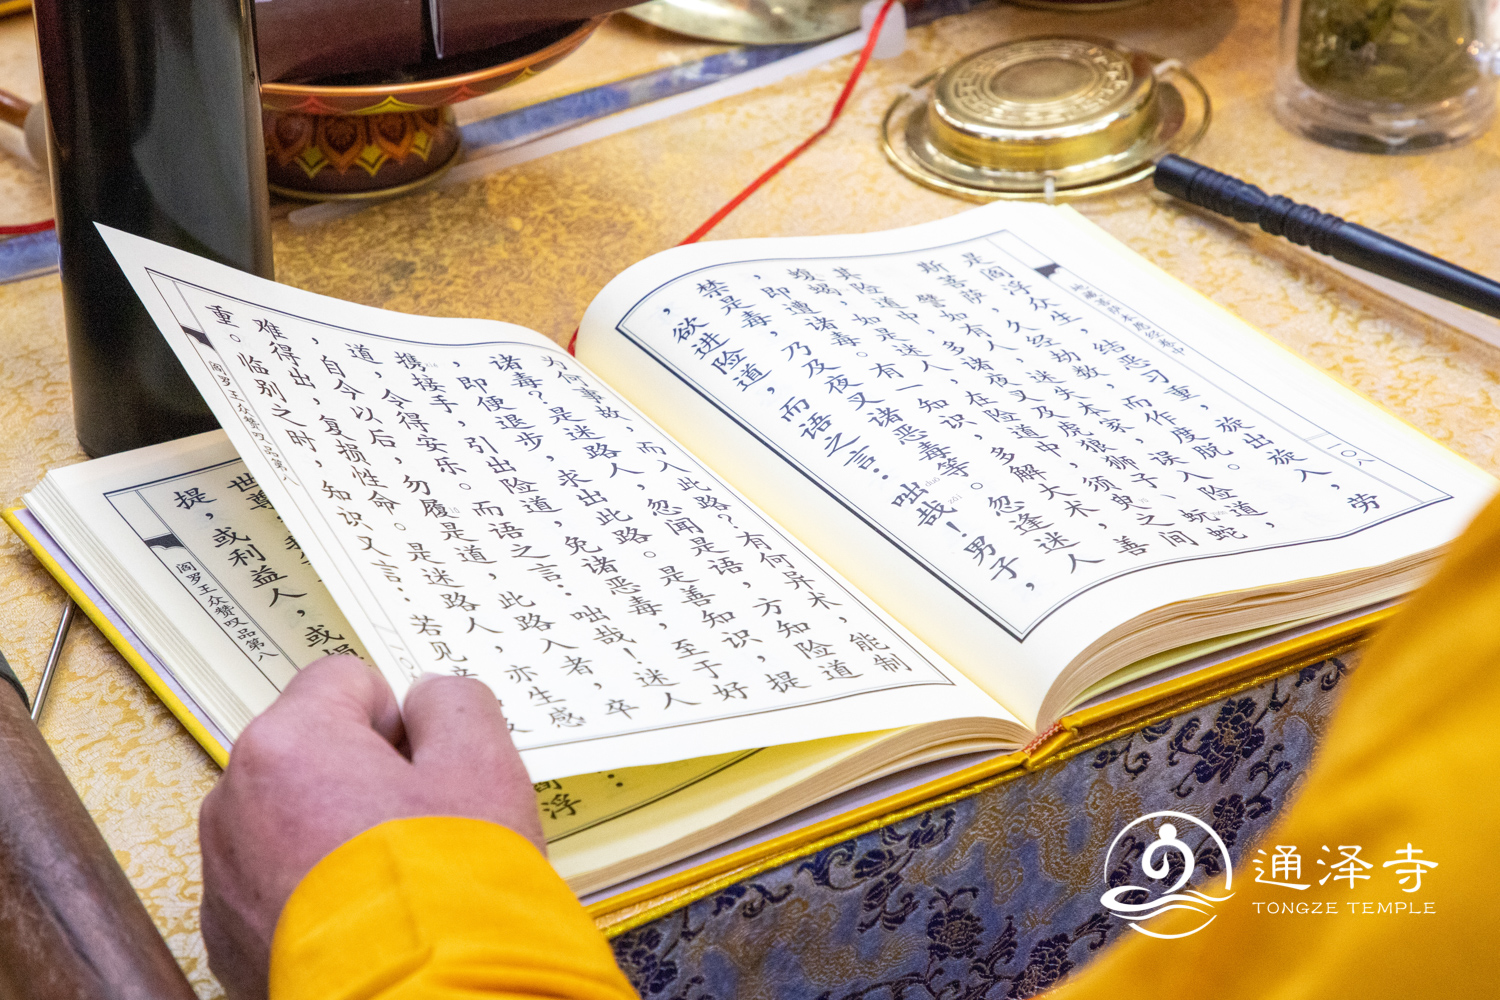 地藏菩萨本愿经卷中
一〇八
是阎浮众生，结恶习重，旋出旋入，劳
斯菩萨，久经劫数，而作度脱。
譬如有人，迷失本家，误入险道，
其险道中，多诸夜叉及虎狼狮子、蚖蛇
蝮蝎，如是迷人，在险道中，须臾之间
，即遭诸毒。有一知识，多解大术，善
禁是毒，乃及夜叉诸恶毒等。忽逢迷人
，欲进险道，而语之言：咄哉！男子，
为何事故，而入此路？有何异术，能制
诸毒？是迷路人，忽闻是语，方知险道
，即便退步，求出此路。是善知识，提
携接手，引出险道，免诸恶毒，至于好
道，令得安乐。而语之言：咄哉！迷人
，自今以后，勿履是道，此路入者，卒
难得出，复损性命。是迷路人，亦生感
重。临别之时，知识又言：若见
阎罗王众赞叹品第八
世尊
提，或利益人，或损
阎罗王众赞叹品第八
通泽寺
TONGZE TEMPLE